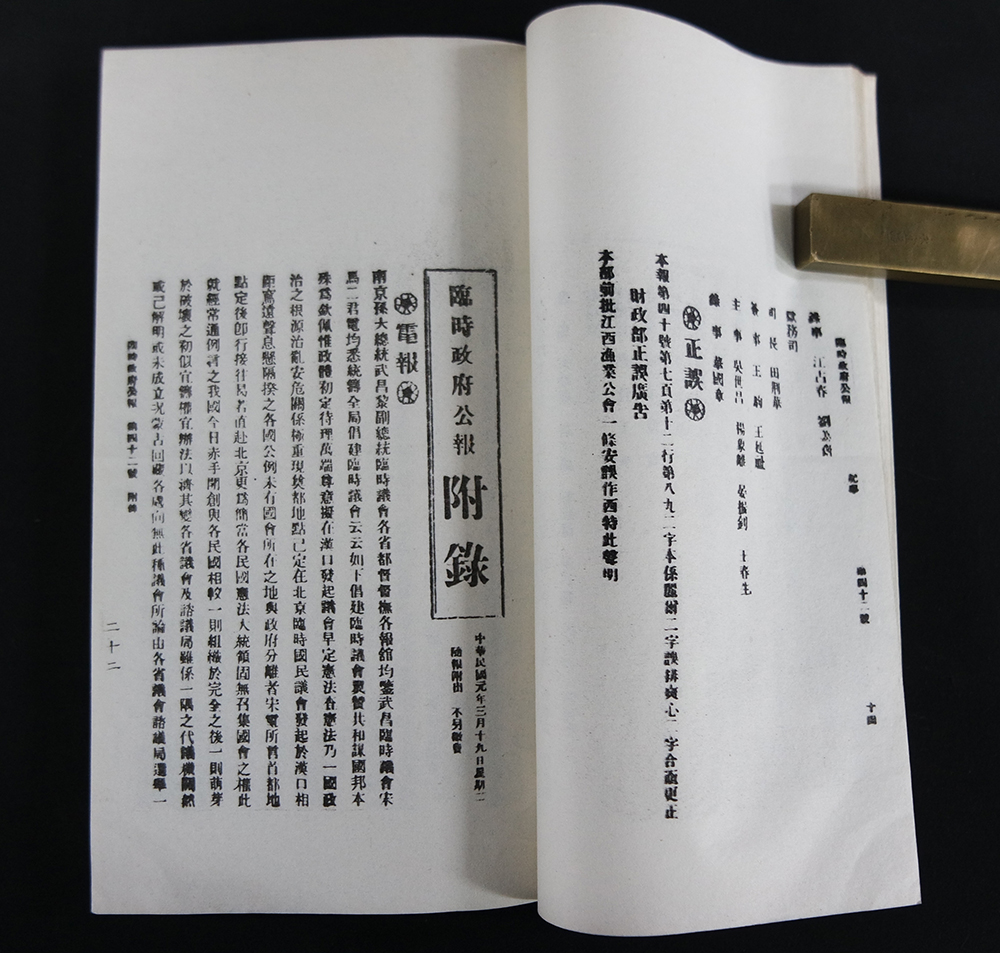 臨時政府公報 紀事 第四十二號 十四
錄事 江古春
監務司
司長 田荆華
僉事 王鈞
主事 吳世昌 楊象離
錄事 嚴國章
正誤
本報第四十號第七頁第十二行第八九二字本係麗爾二字誤排爽心二字合亟更正
財政部正誤廣告
本部前批江西漁業公會一條安誤作西特此聲明
臨時政府公報 附錄
中華民國元年三月十九日星期二
隨報附出 不另徵費
電報
南京孫大總統武昌黎副總統臨時議會各省都督督撫各報館均鑒武昌臨時議會宋
馬二君電均悉統籌全局倡建臨時議會云云如下倡建臨時議會聚贊共和謀國邦本
殊爲欽佩惟政體初定待理萬端尊意擬在漢口發起議會早定憲法查憲法乃一國政
治之根源治亂安危關係極重現奠都地點已定在北京臨時國民議會發起於漢口相
距寫遠聲息懸隔揆之各國公例未有國會所在之地與政府分離者宋電所言首都地
點定後卽行接往民者直赴北京更爲簡當各民國憲法大統領固無召集國會之權此
就經常通例言之我國今日赤手開創與各民國相較一則組織於完全之後一則萌芽
於破壞之初似宜籌權宜辦法以濟其變各省議會及諮議局雖係一隅之代議機關然
或已解明或未成立況蒙古回藏各處向無此種議會所論由各省議會諮議局選舉一
臨時政府公報 第四十二號 附錄
二十二